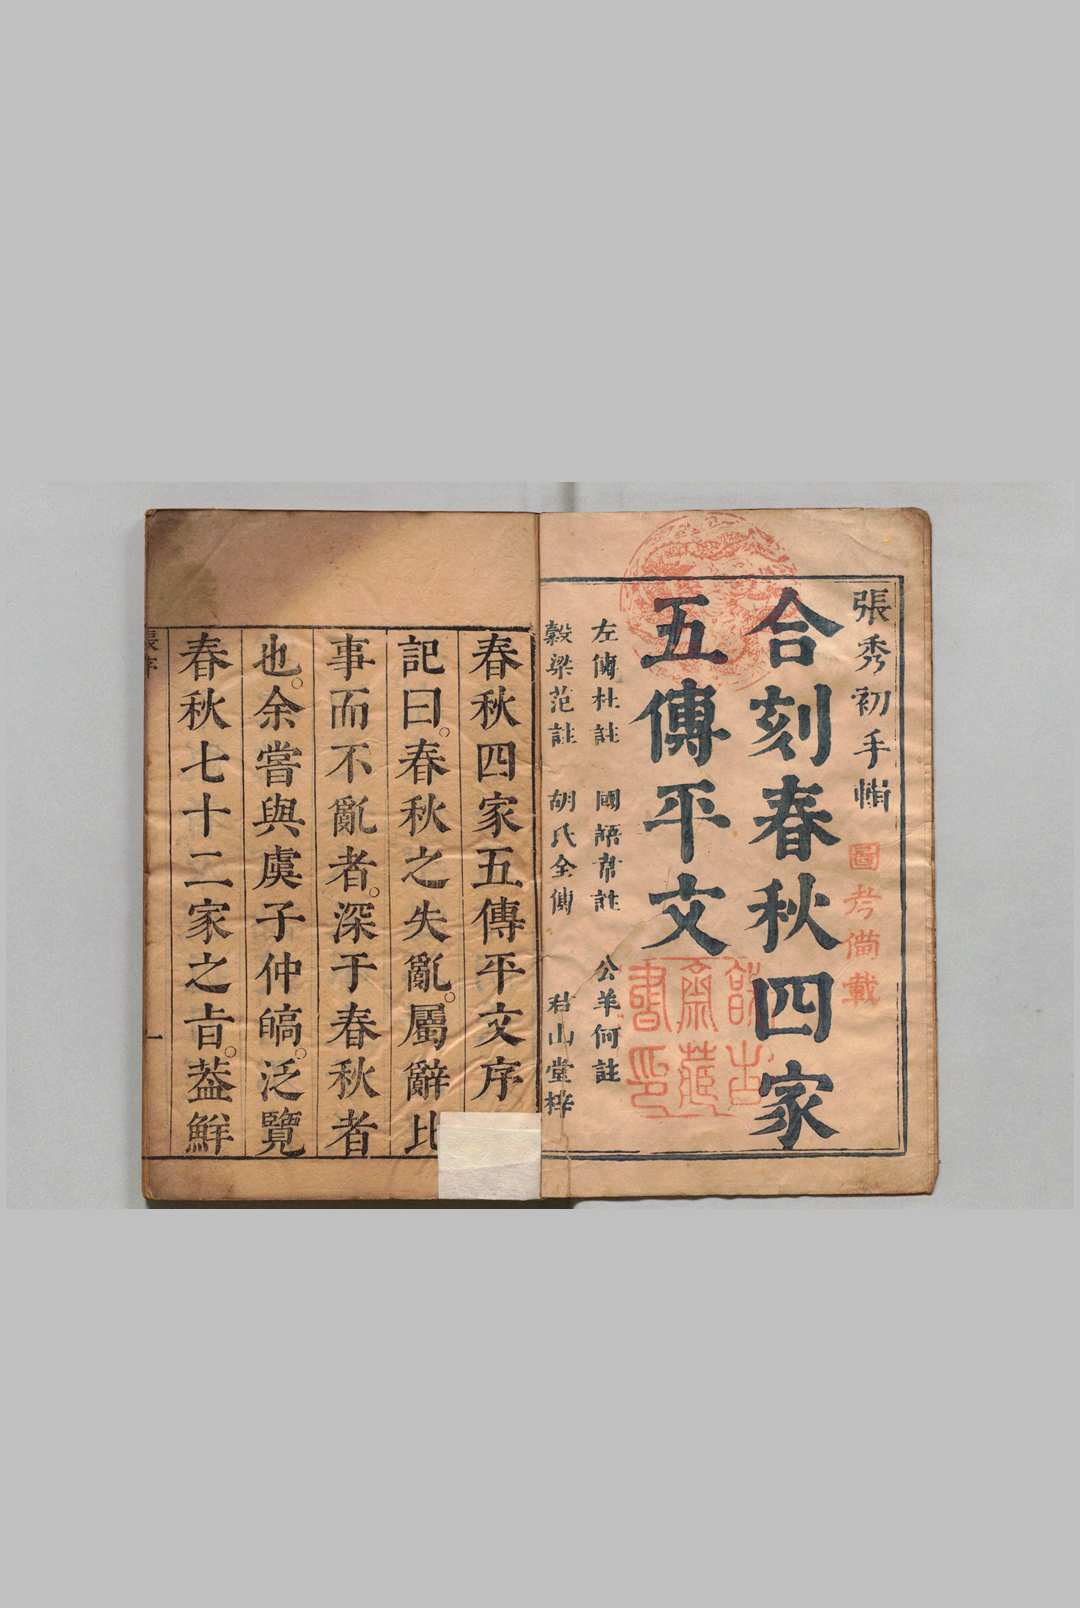 張秀初手輯
圖考備載
合刻春秋四家
五傳平文
左傳杜註 國語韋註 公羊何註
穀梁范註 胡氏全傳 君山堂梓
春秋四家五傳平文序
記曰。春秋之失亂。屬辭比
事而不亂者。深于春秋者
也。余嘗與虞子仲皜。泛覽
春秋七十二家之㫖。葢鮮
張序 一